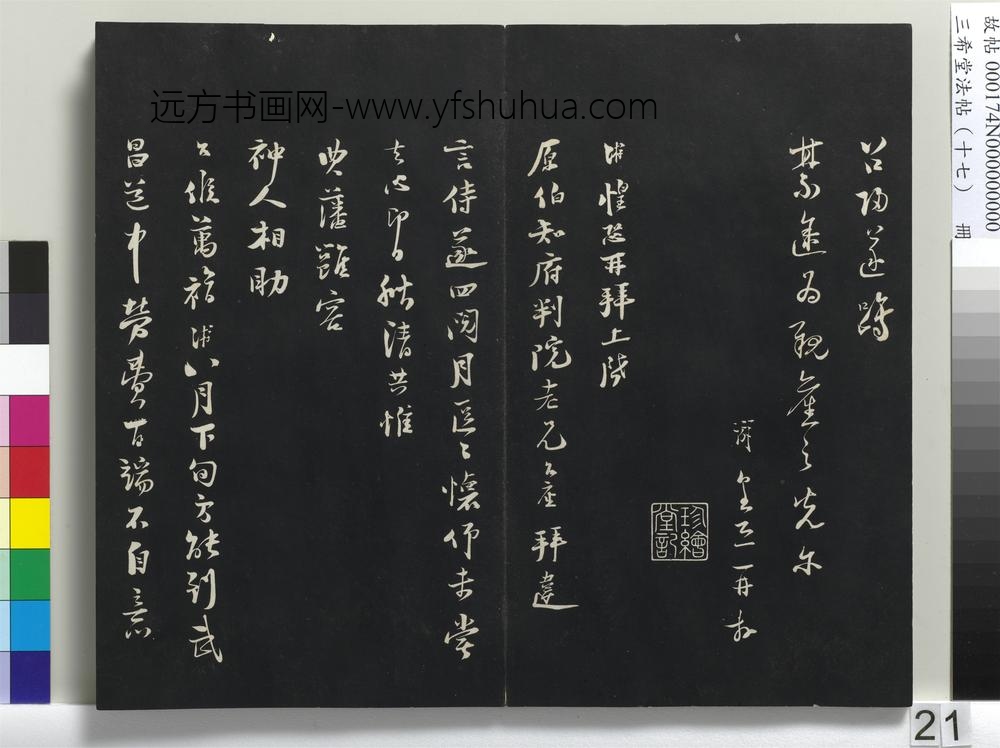 远方书画网-www.yfshuhua.com
故帖 000174N000000000
三希堂法帖（十七） 冊
召歸遂躋
禁途為親舊之光爾
游 皇恐再拜
珍繪堂記
游惶恐再拜上啓
原伯知府判院老兄台座 拜違
言侍遂四閱月區區懷仰未嘗
去心即日秋清共惟
典藩雍容
神人相助
台候萬福游八月下旬方能到武
昌道中勞費百端不自意
21